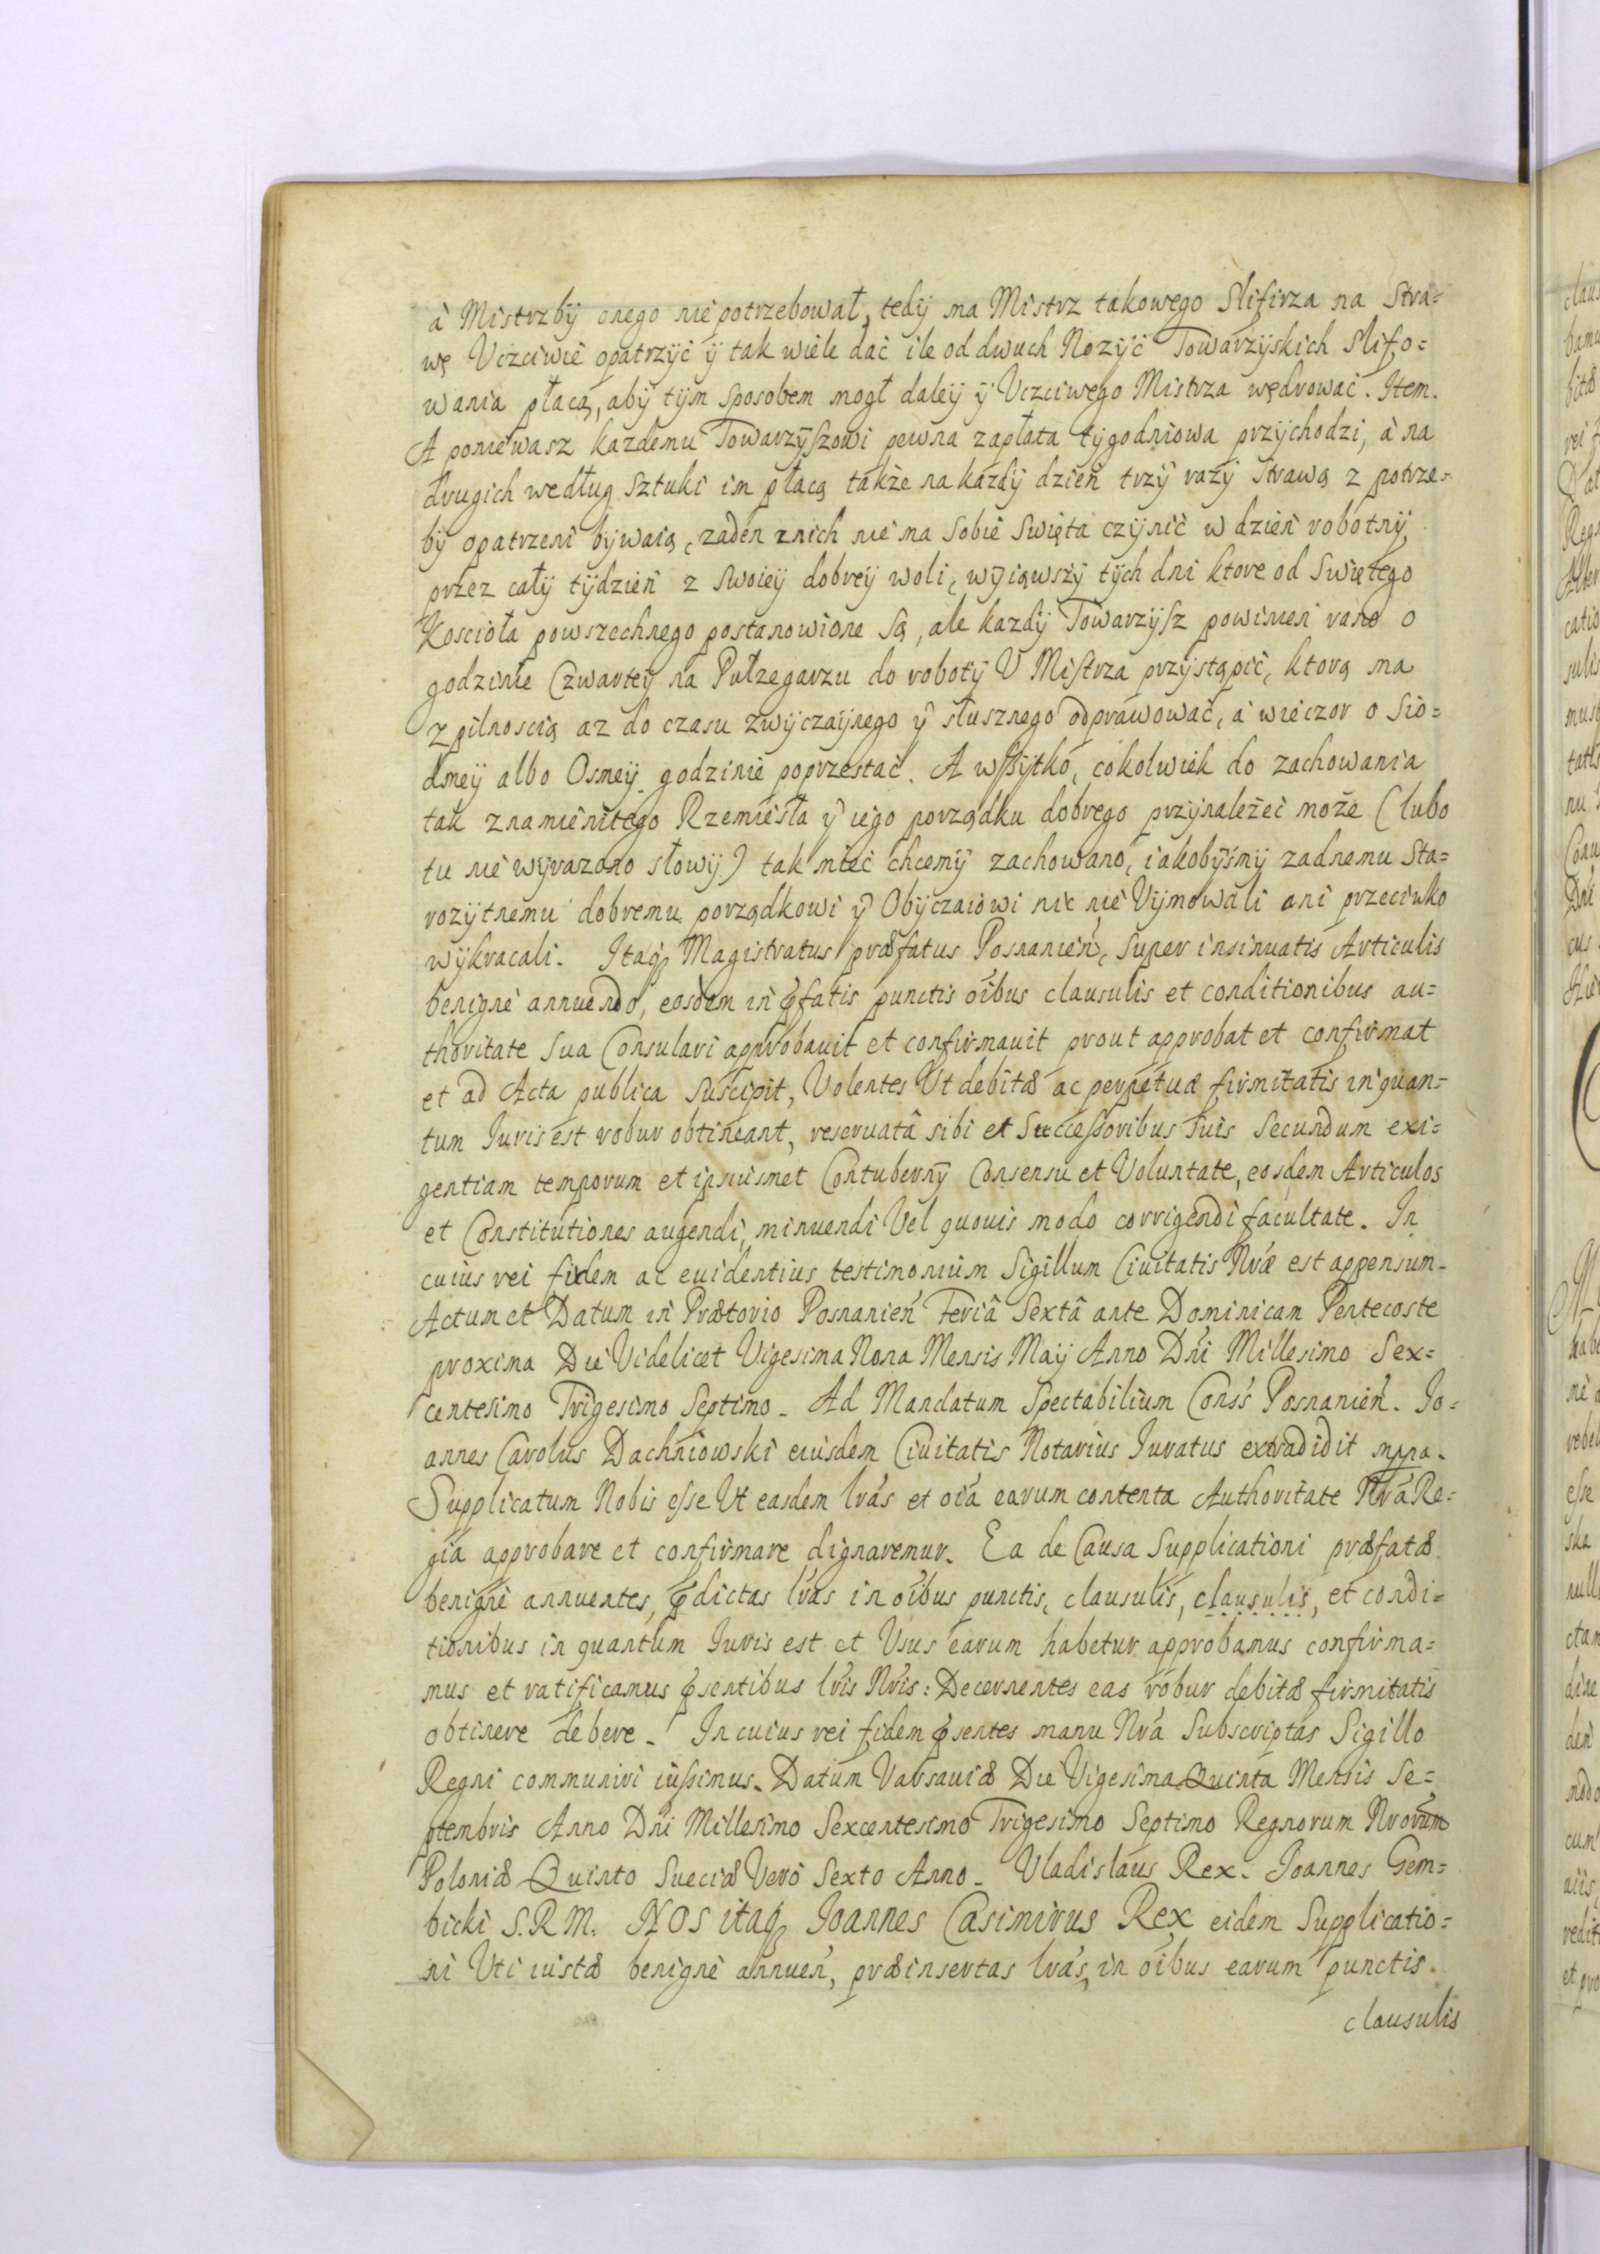 à Mistrzbÿ onego niepotrzebował, tedÿ ma Mistrz takowego Slifirza na Stra=
wę Vczciwie opatrzÿć ÿ tak wiele dać ile od dwuch Nozÿć Towarzÿskich Slifo=
wania płacą, abÿ tÿm sposobem mogł daleÿ ÿ Vczciwego Mistrza wędrować. Item.
A poniewasz kazdemu Towarzÿszowi pewna zapłata tÿgodniowa przÿchodzi, à na
drugich według Sztuki im płacą także na kazdÿ dzień trzÿ razÿ Strawą z potrze=
bÿ opatrzeni bÿwaią, zaden znich nie ma Sobie Swięta czÿnić w dzień robotnÿ
przez całÿ tÿdzień z Swoieÿ dobreÿ woli, wÿiąwszÿ tÿch dni ktore od Swiętego
Koscioła powszechnego postanowione Są, ale kazdÿ Towarzÿsz powinien rano o
godzinie Czwarteÿ na Pułzegarzu do robotÿ V Mistrza przÿstąpić, ktorą ma
z pilnoscią az do czasu zwÿczaÿnego ÿ słusznego odprawować, à wieczor o Sio=
dmeÿ albo Osmeÿ godzinie poprzestać. A wszÿtko, cokolwiek do zachowania
tak znamienitego Rzemiesła ÿ iego porządku dobrego przÿnależeć może (lubo
tu nie wÿrazono słowÿ) tak mieć chcemÿ zachowano, iakobÿsmÿ zadnemu Sta=
rozÿtnemu dobremu porządkowi ÿ Obÿczaiowi nic nie Vÿmowali ani przeciwko
wÿkracali. Itaq Magistratus præfatus Posnanień, Super insinuatis Articulis
benigne annuendo, eosdem in p̃fatis punctis oĩbus clausulis et conditionibus au=
thoritate Sua Consulari approbauit et confirmauit prout approbat et confirmat
et ad Acta publica Suscipit, Volentes Vt debitæ ac perpetuæ firmitatis inquan=
tum Iuris est robur obtineant, reseruatâ sibi et Successoribus Suis Secundum exi=
gentiam temporum et ipsiusmet Contubernÿ Consensu et Voluntate, eosdem Articulos
et Constitutiones augendi, minuendi Vel quouis modo corrigendi facultate. In
cuius rei fidem ac euidentius testimonium Sigillum Ciuitatis Nræ est appensum.
Actum et Datum in Prætorio Posnanień Feriâ Sextâ ante Dominicam Pentecoste
proxima Die Videlicet Vigesima Nona Mensis Maÿ Anno Dñi Millesimo Sex=
centesimo Trigesimo Septimo. Ad Mandatum Spectabilium Conss Posnanień. Jo=
annes Carolus Dachniowski eiusdem Ciuitatis Notarius Iuratus extradidit mpra.
Supplicatum Nobis esse Vt easdem lrás et oía earum contenta Authoritate Nrá Re=
gia approbare et confirmare dignaremur. Ea de Causa Supplicationi præfatæ
benigne annuentes, p̃dictas lrás in oĩbus punctis, clausulis, clausulis, et condi=
tionibus in quantum Iuris est et Vsus earum habetur approbamus confirma=
mus et ratificamus p̃sentibus lrís Nrís: Decernentes eas robur debitæ firmitatis
obtinere debere. In cuius rei fidem p̃sentes manu Nrá Subscriptas Sigillo
Regni communiri iussimus. Datum Varsauiæ Die Vigesima Quinta Mensis Se=
ptembris Anno Dñi Millesimo Sexcentesimo Trigesimo Septimo Regnorum Nrorum
Poloniæ Quinto Sueciæ Vero Sexto Anno. Vladislaus Rex. Joannes Gem=
bicki S.R.M. NOS itaq Joannes Casimirus Rex eidem Supplicatio=
ni Vti iustæ benigne annuen̄, præinsertas lrás, in oĩbus earum punctis.
clausulis